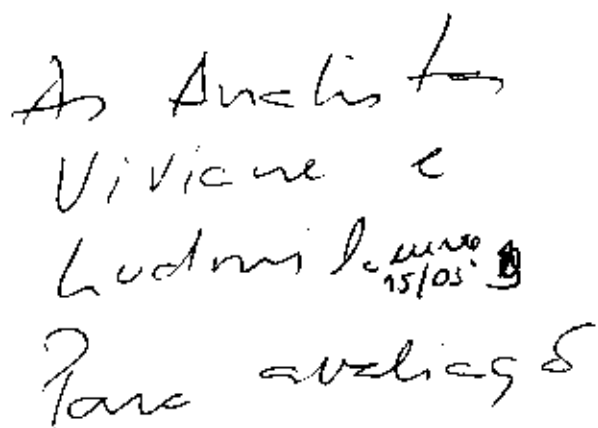 As Analistas
Viviane e
Ludmila
15/03
Para avaliação